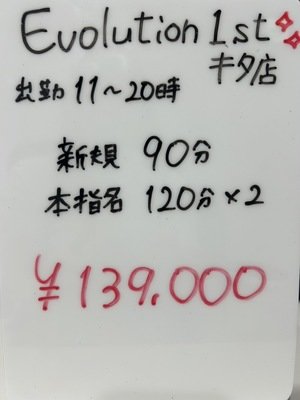 Evolution 1st
キタ店
出勤 11～20時
新規 90分
本指名 120分×2
¥139.000